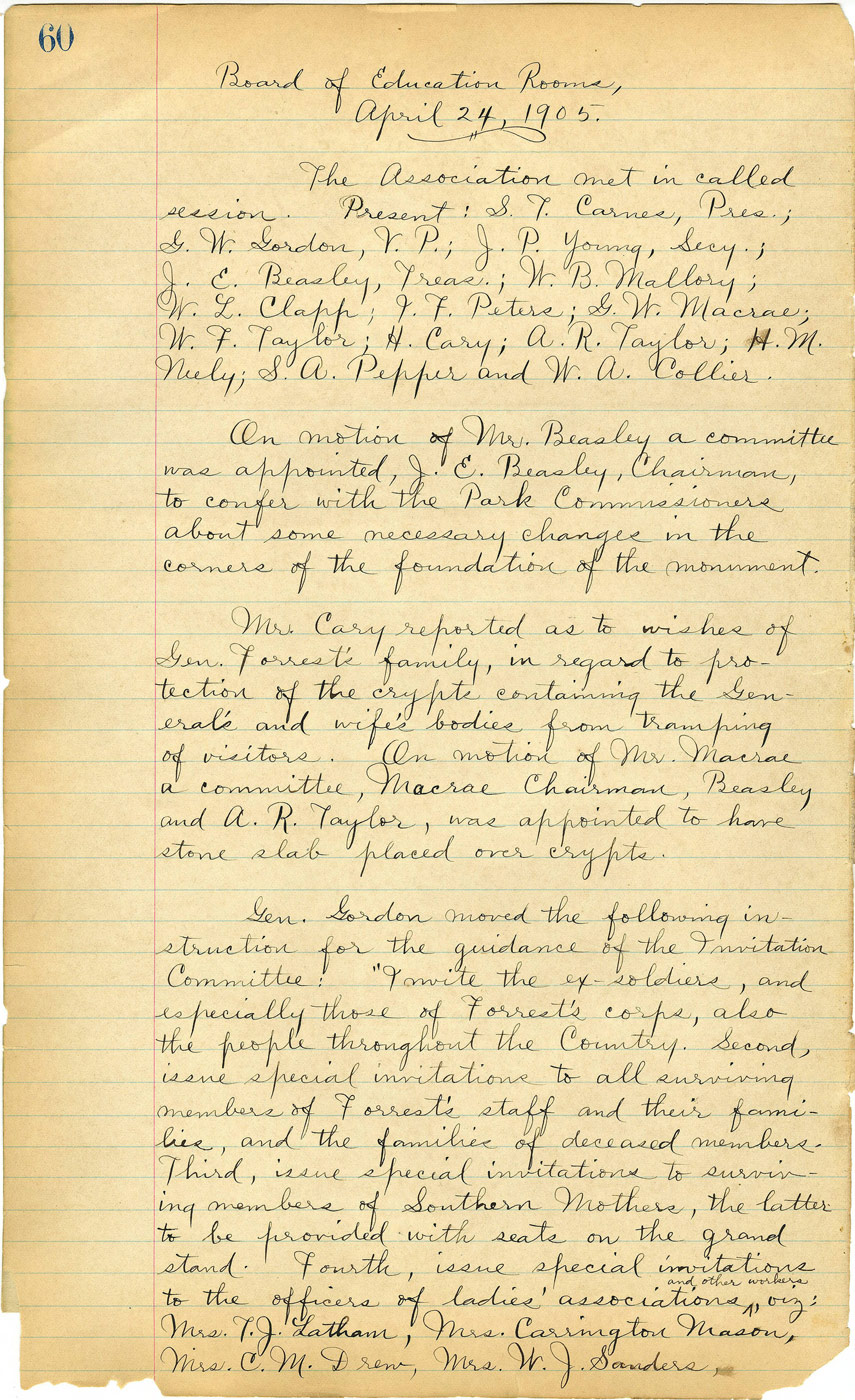 60
Board of Education Rooms,
April 24, 1905.
The Association met in called
session. Present: S. T. Carnes, Pres.;
G. W. Gordon, V. P.; J. P. Young, Secy.;
J. E. Beasley, Treas.; W. B. Mallory;
W. L. Clapp; I. F. Peters; G. W. Macrae;
W. F. Taylor; H. Cary; A. R. Taylor; H. M.
Neely; S. A. Pepper and W. A. Collier.
On motion of Mr. Beasley a committee
was appointed, J. E. Beasley, Chairman,
to confer with the Park Commissioners
about some necessary changes in the
corners of the foundation of the monument.
Mr. Cary reported as to wishes of
Gen. Forrest's family, in regard to pro-
tection of the crypts containing the Gen-
eral's and wife's bodies from tramping
of visitors. On motion of Mr. Macrae
a committee, Macrae Chairman, Beasley
and A. R. Taylor, was appointed to have
stone slab placed over crypts.
Gen. Gordon moved the following in-
struction for the guidance of the Invitation
Committee: "Invite the ex-soldiers, and
especially those of Forrest's corps, also
the people throughout the Country. Second,
issue special invitations to all surviving
members of Forrest's staff and their fami-
lies, and the families of deceased members.
Third, issue special invitations to surviv-
ing members of Southern Mothers, the latter
to be provided with seats on the grand
stand. Fourth, issue special invitations
and other workers
to the officers of ladies' associations, viz:
Mrs. T. J. Latham, Mrs. Carrington Mason,
Mrs. C. M. Drew, Mrs. W. J. Sanders,